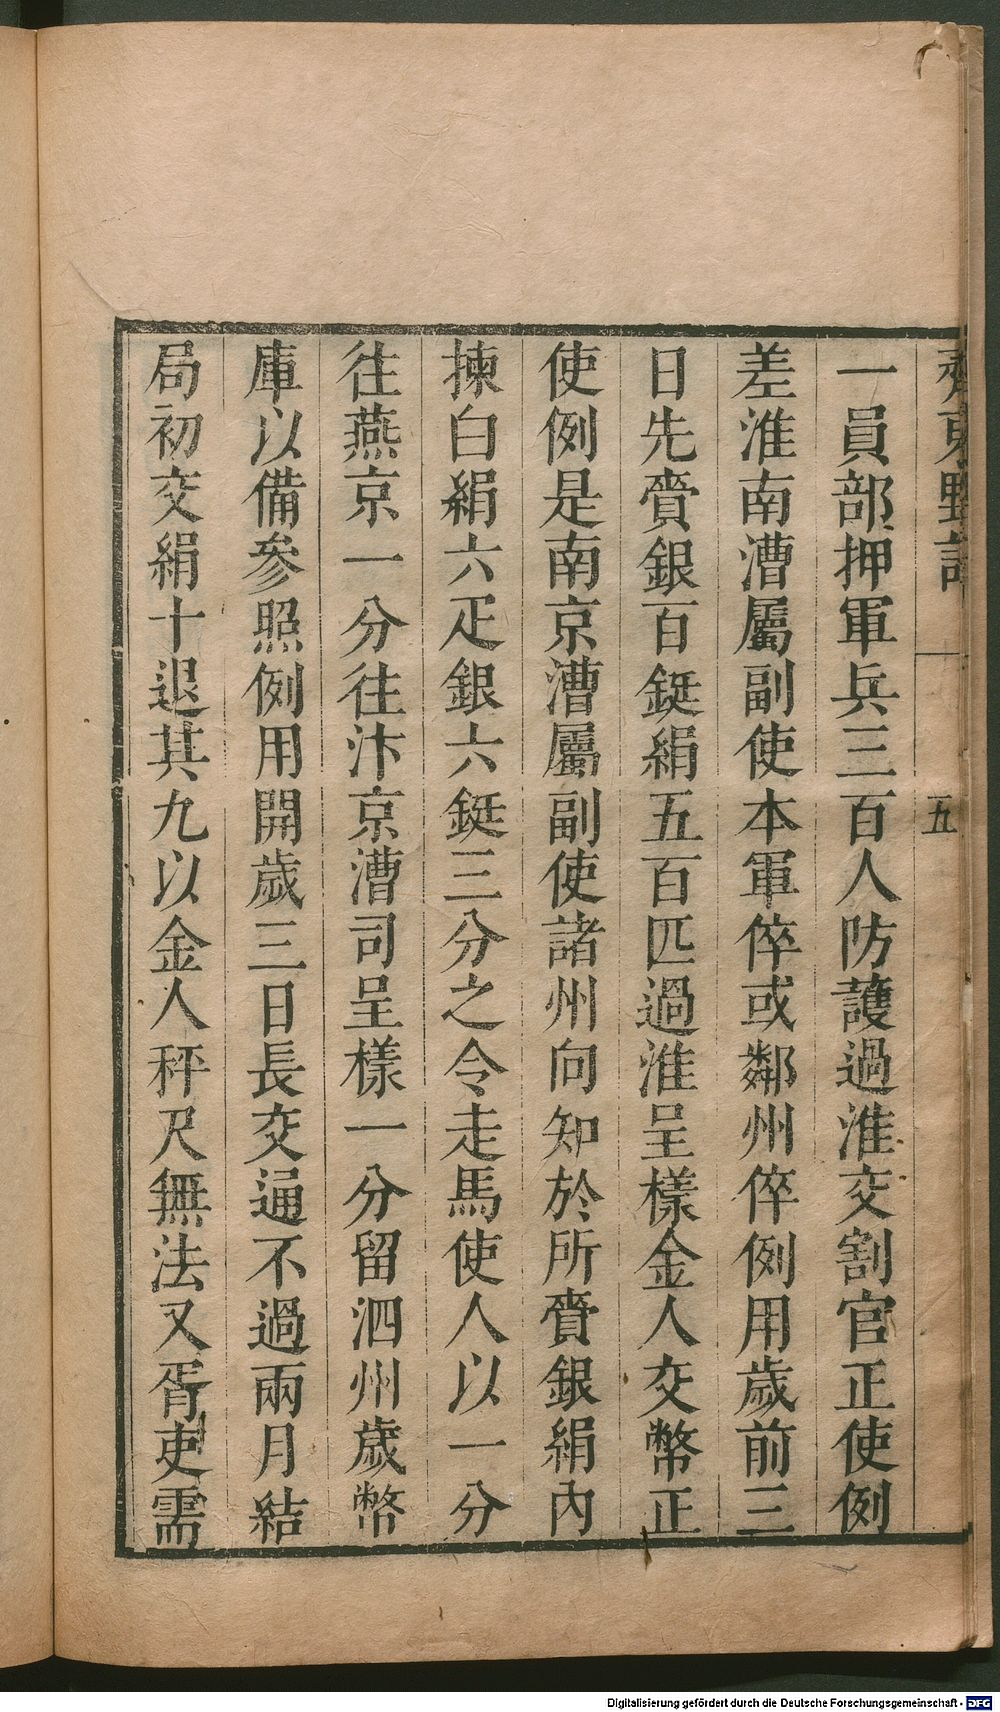 齊東野語
五
一員部押軍兵三百人防護過淮交割官正使例
差淮南漕屬副使本軍倅或鄰州倅例用歲前三
日先賫銀百鋌絹五百匹過淮呈樣金人交幣正
使例是南京漕屬副使諸州向知於所賫銀絹內
揀白絹六疋銀六鋌三分之令走馬使人以一分
往燕京一分往汴京漕司呈樣一分留泗州歲幣
庫以備參照例用開歲三日長交通不過兩月結
局初交絹十退其九以金人秤尺無法又胥吏需
Digitalisierung gefördert durch die Deutsche Forschungsgemeinschaft - DFG